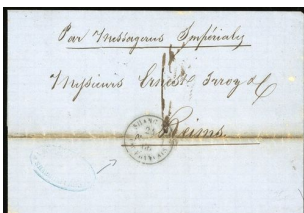 Par Messageries Impériales
Messieurs Ernest Irroy & C
Reims.
SHANG
24
66